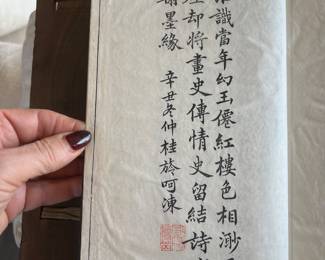 識當年幻玉僊紅樓色相渺
却將畫史傳情史留結詩
墨緣
辛丑冬仲桂舲呵凍